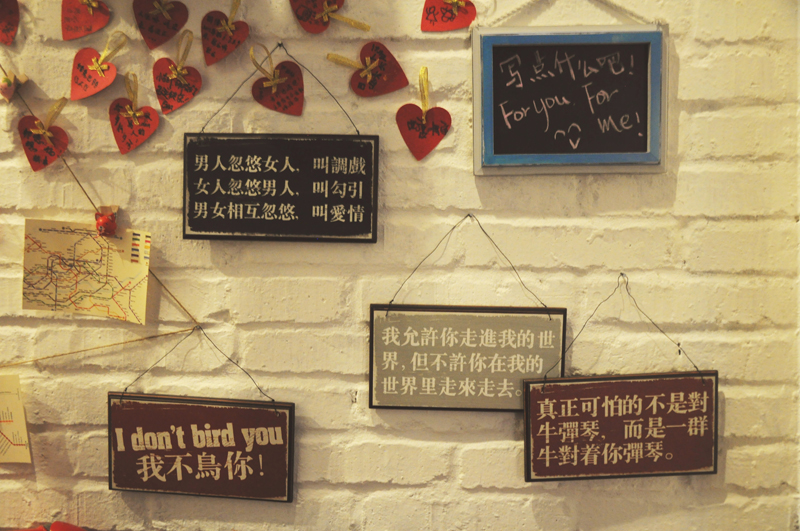 写点什么吧!
For you For
me!
男人忽悠女人，叫調戲
女人忽悠男人，叫勾引
男女相互忽悠，叫愛情
我允許你走進我的世
界，但不許你在我的
世界里走來走去。
真正可怕的不是對
牛彈琴，而是一群
牛對着你彈琴。
I don't bird you
我不鳥你!